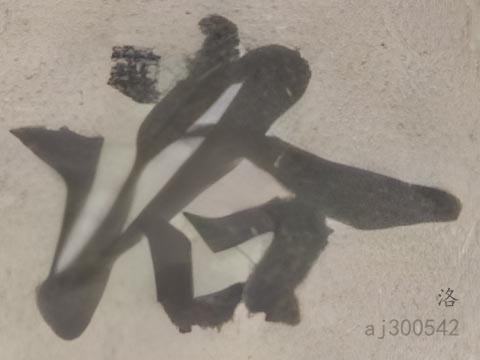 洛
洛
aj300542